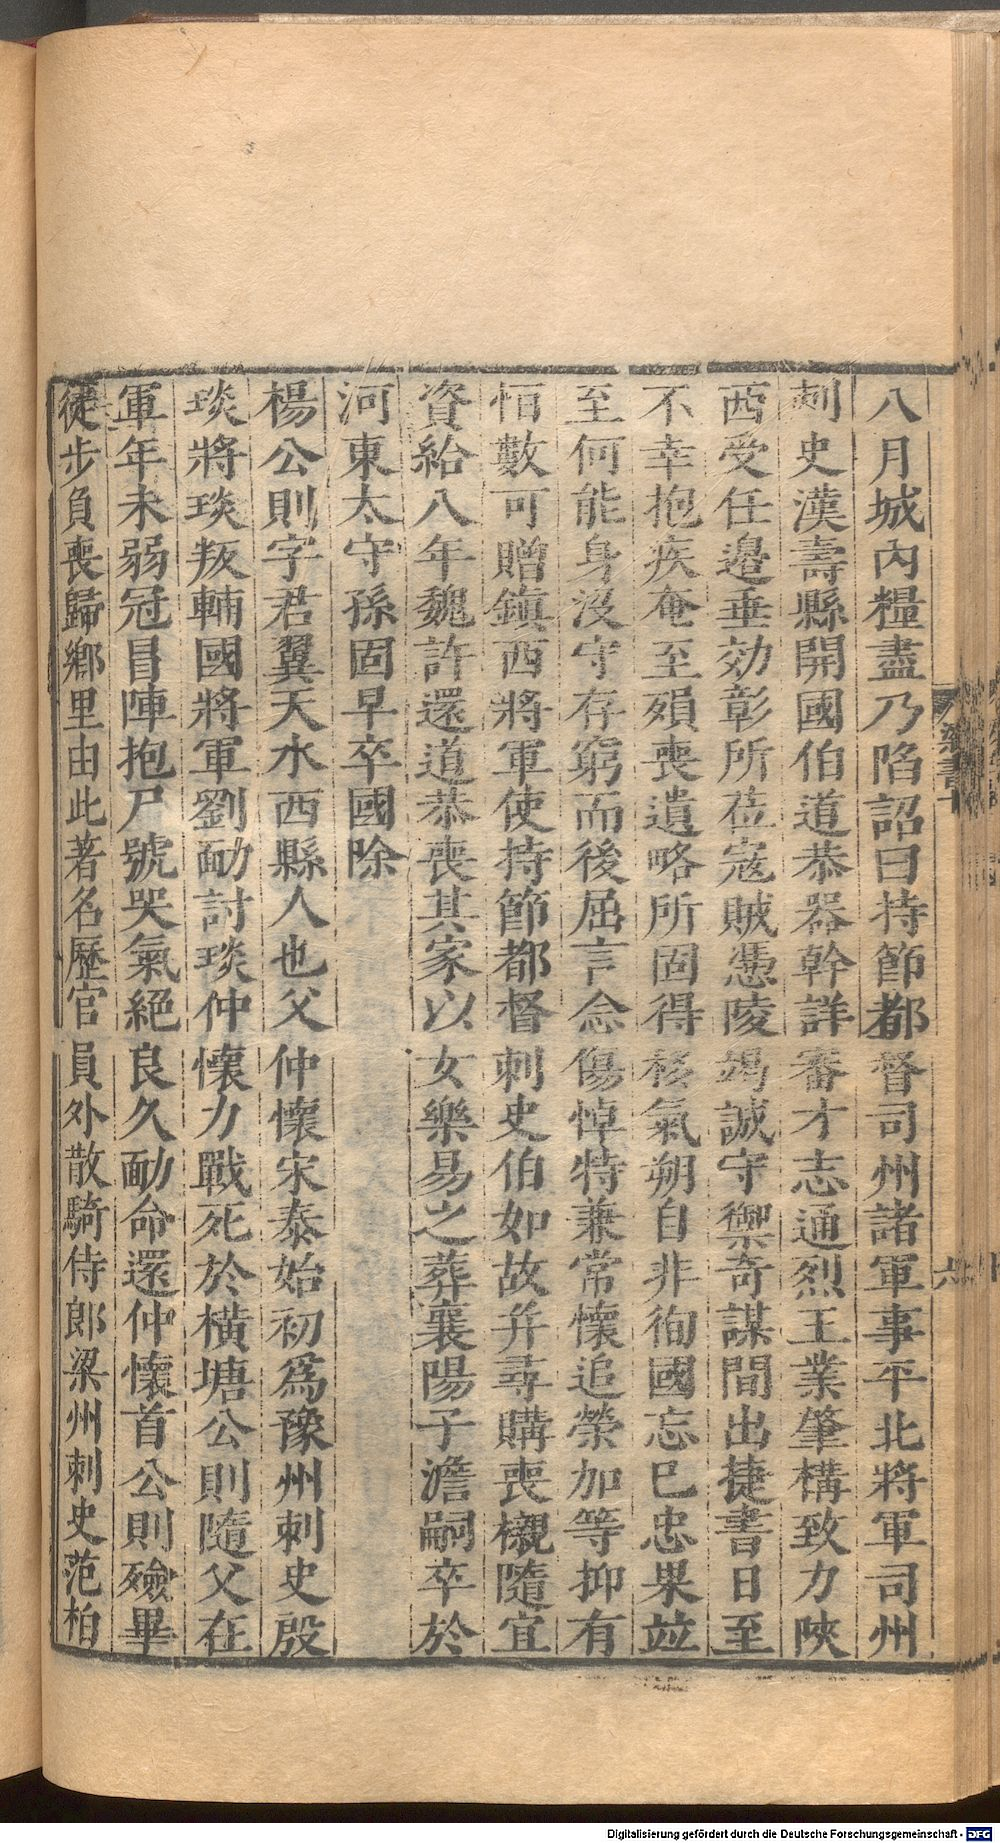 八月城內糧盡乃陷詔曰持節都督司州諸軍事平北將軍司州
刺史漢壽縣開國伯道恭器幹詳審才志通烈王業肇構致力陝
西受任邊垂効彰所莅寇賊憑陵竭誠守禦奇謀間出捷書日至
不幸抱疾奄至殞喪遺略所固得移氣朔自非徇國忘已忠果竝
至何能身沒守存窮而後屈言念傷悼特兼常懷追榮加等抑有
恒數可贈鎮西將軍使持節都督刺史伯如故并尋購喪櫬隨宜
資給八年魏許還道恭喪其家以女樂易之葬襄陽子澹嗣卒於
河東太守孫固早卒國除
楊公則字君翼天水西縣人也父仲懷宋泰始初爲豫州刺史殷
琰將琰叛輔國將軍劉勔討琰仲懷力戰死於橫塘公則隨父在
軍年未弱冠冒陣抱尸號哭氣絕良久勔命還仲懷首公則殮畢
徒步負喪歸鄉里由此著名歷官員外散騎侍郎梁州刺史范柏
六
Digitalisierung gefördert durch die Deutsche Forschungsgemeinschaft - DFG